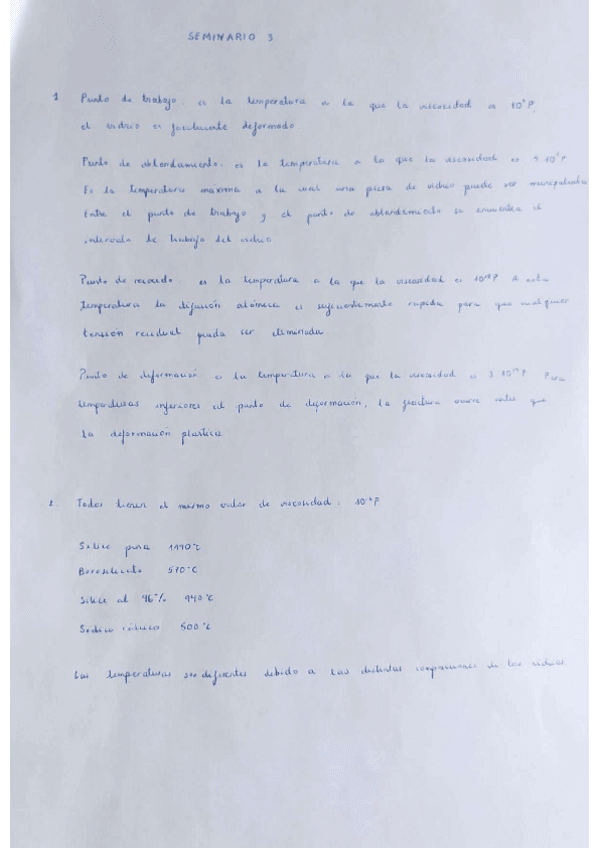 SEMINARIO 3
1 Punto de trabajo: es la temperatura a la que la viscosidad es 10⁴P,
el vidrio es facilmente deformado
Punto de ablandamiento: es la temperatura a la que la viscosidad es
Es la temperatura maxima a la cual una pieza de vidrio puede ser manipulada
Entre el punto de trabajo y el punto de ablandamiento se encuentra el
intervalo de trabajo del vidrio
Punto de recocido: es la temperatura a la que la viscosidad es A esta
temperatura la difusión atómica es suficientemente rapida para que cualquier
tensión residual pueda ser eliminada
Punto de deformación: es la temperatura a la que la viscosidad es Para
temperaturas inferiores al punto de deformación, la fractura ocurre antes que
la deformación plastica
2. Todos tienen el mismo valor de viscosidad:
Silice pura 1190°C
Borosilicato 570°C
Silice al 96% 940°C
Sodico 500°C
Las temperaturas son diferentes debido a las distintas composiciones de los vidrios